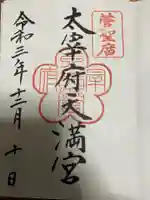 菅聖庿
太宰府天満宮
令和三年十二月十日